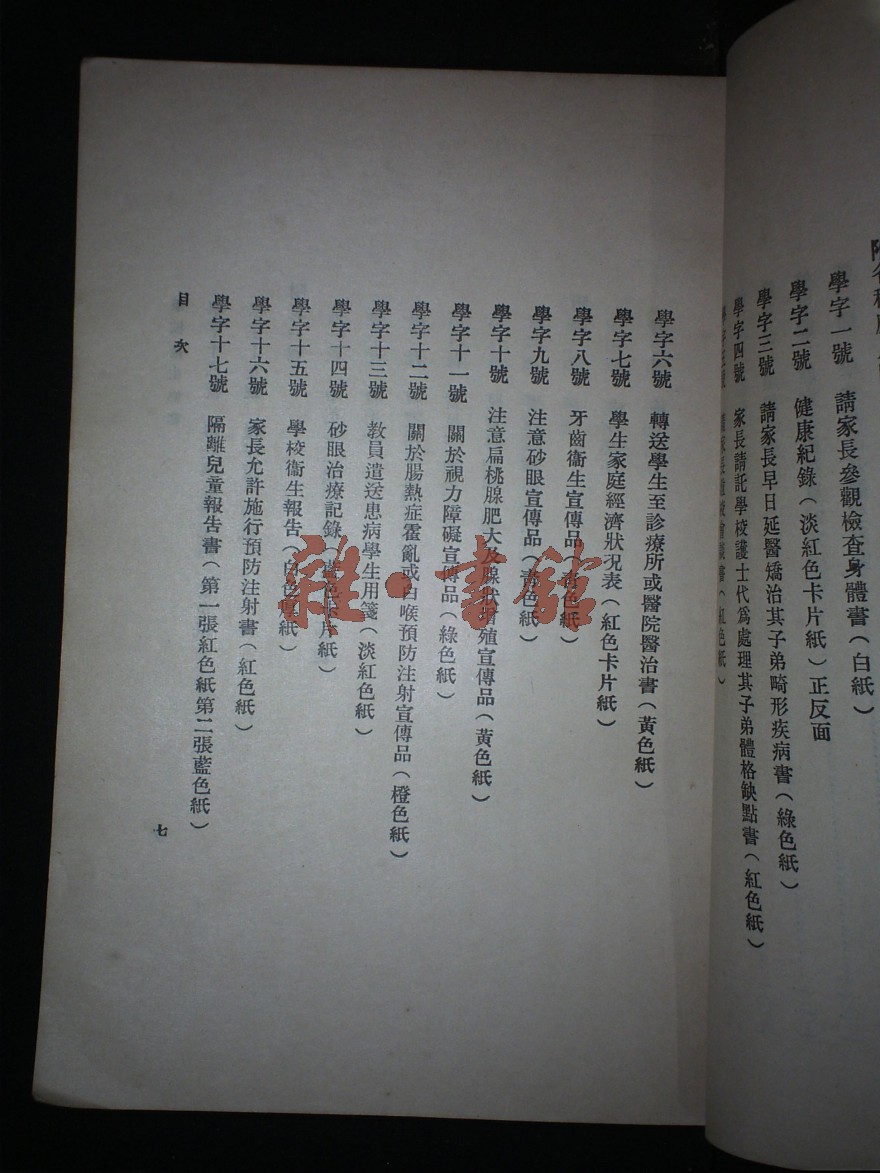 學字一號　請家長參觀檢查身體書（白紙）
學字二號　健康紀錄（淡紅色卡片紙）正反面
學字三號　請家長早日延醫矯治其子弟畸形疾病書（綠色紙）
學字四號　家長請託學校護士代為處理其子弟體格缺點書（紅色紙）
學字六號　轉送學生至診療所或醫院醫治書（黃色紙）
學字七號　學生家庭經濟狀況表（紅色卡片紙）
學字八號　牙齒衞生宣傳品（黃色紙）
學字九號　注意砂眼宣傳品（黃色紙）
學字十號　注意扁桃腺肥大及腺狀增殖宣傳品（黃色紙）
學字十一號　關於視力障礙宣傳品（綠色紙）
學字十二號　關於腸熱症霍亂或白喉預防注射宣傳品（橙色紙）
學字十三號　教員遣送患病學生用箋（淡紅色紙）
學字十四號　砂眼治療記錄（藍色卡片紙）
學字十五號　學校衞生報告（白色厚紙）
學字十六號　家長允許施行預防注射書（紅色紙）
學字十七號　隔離兒童報告書（第一張紅色紙第二張藍色紙）
目次
七
雜·書館